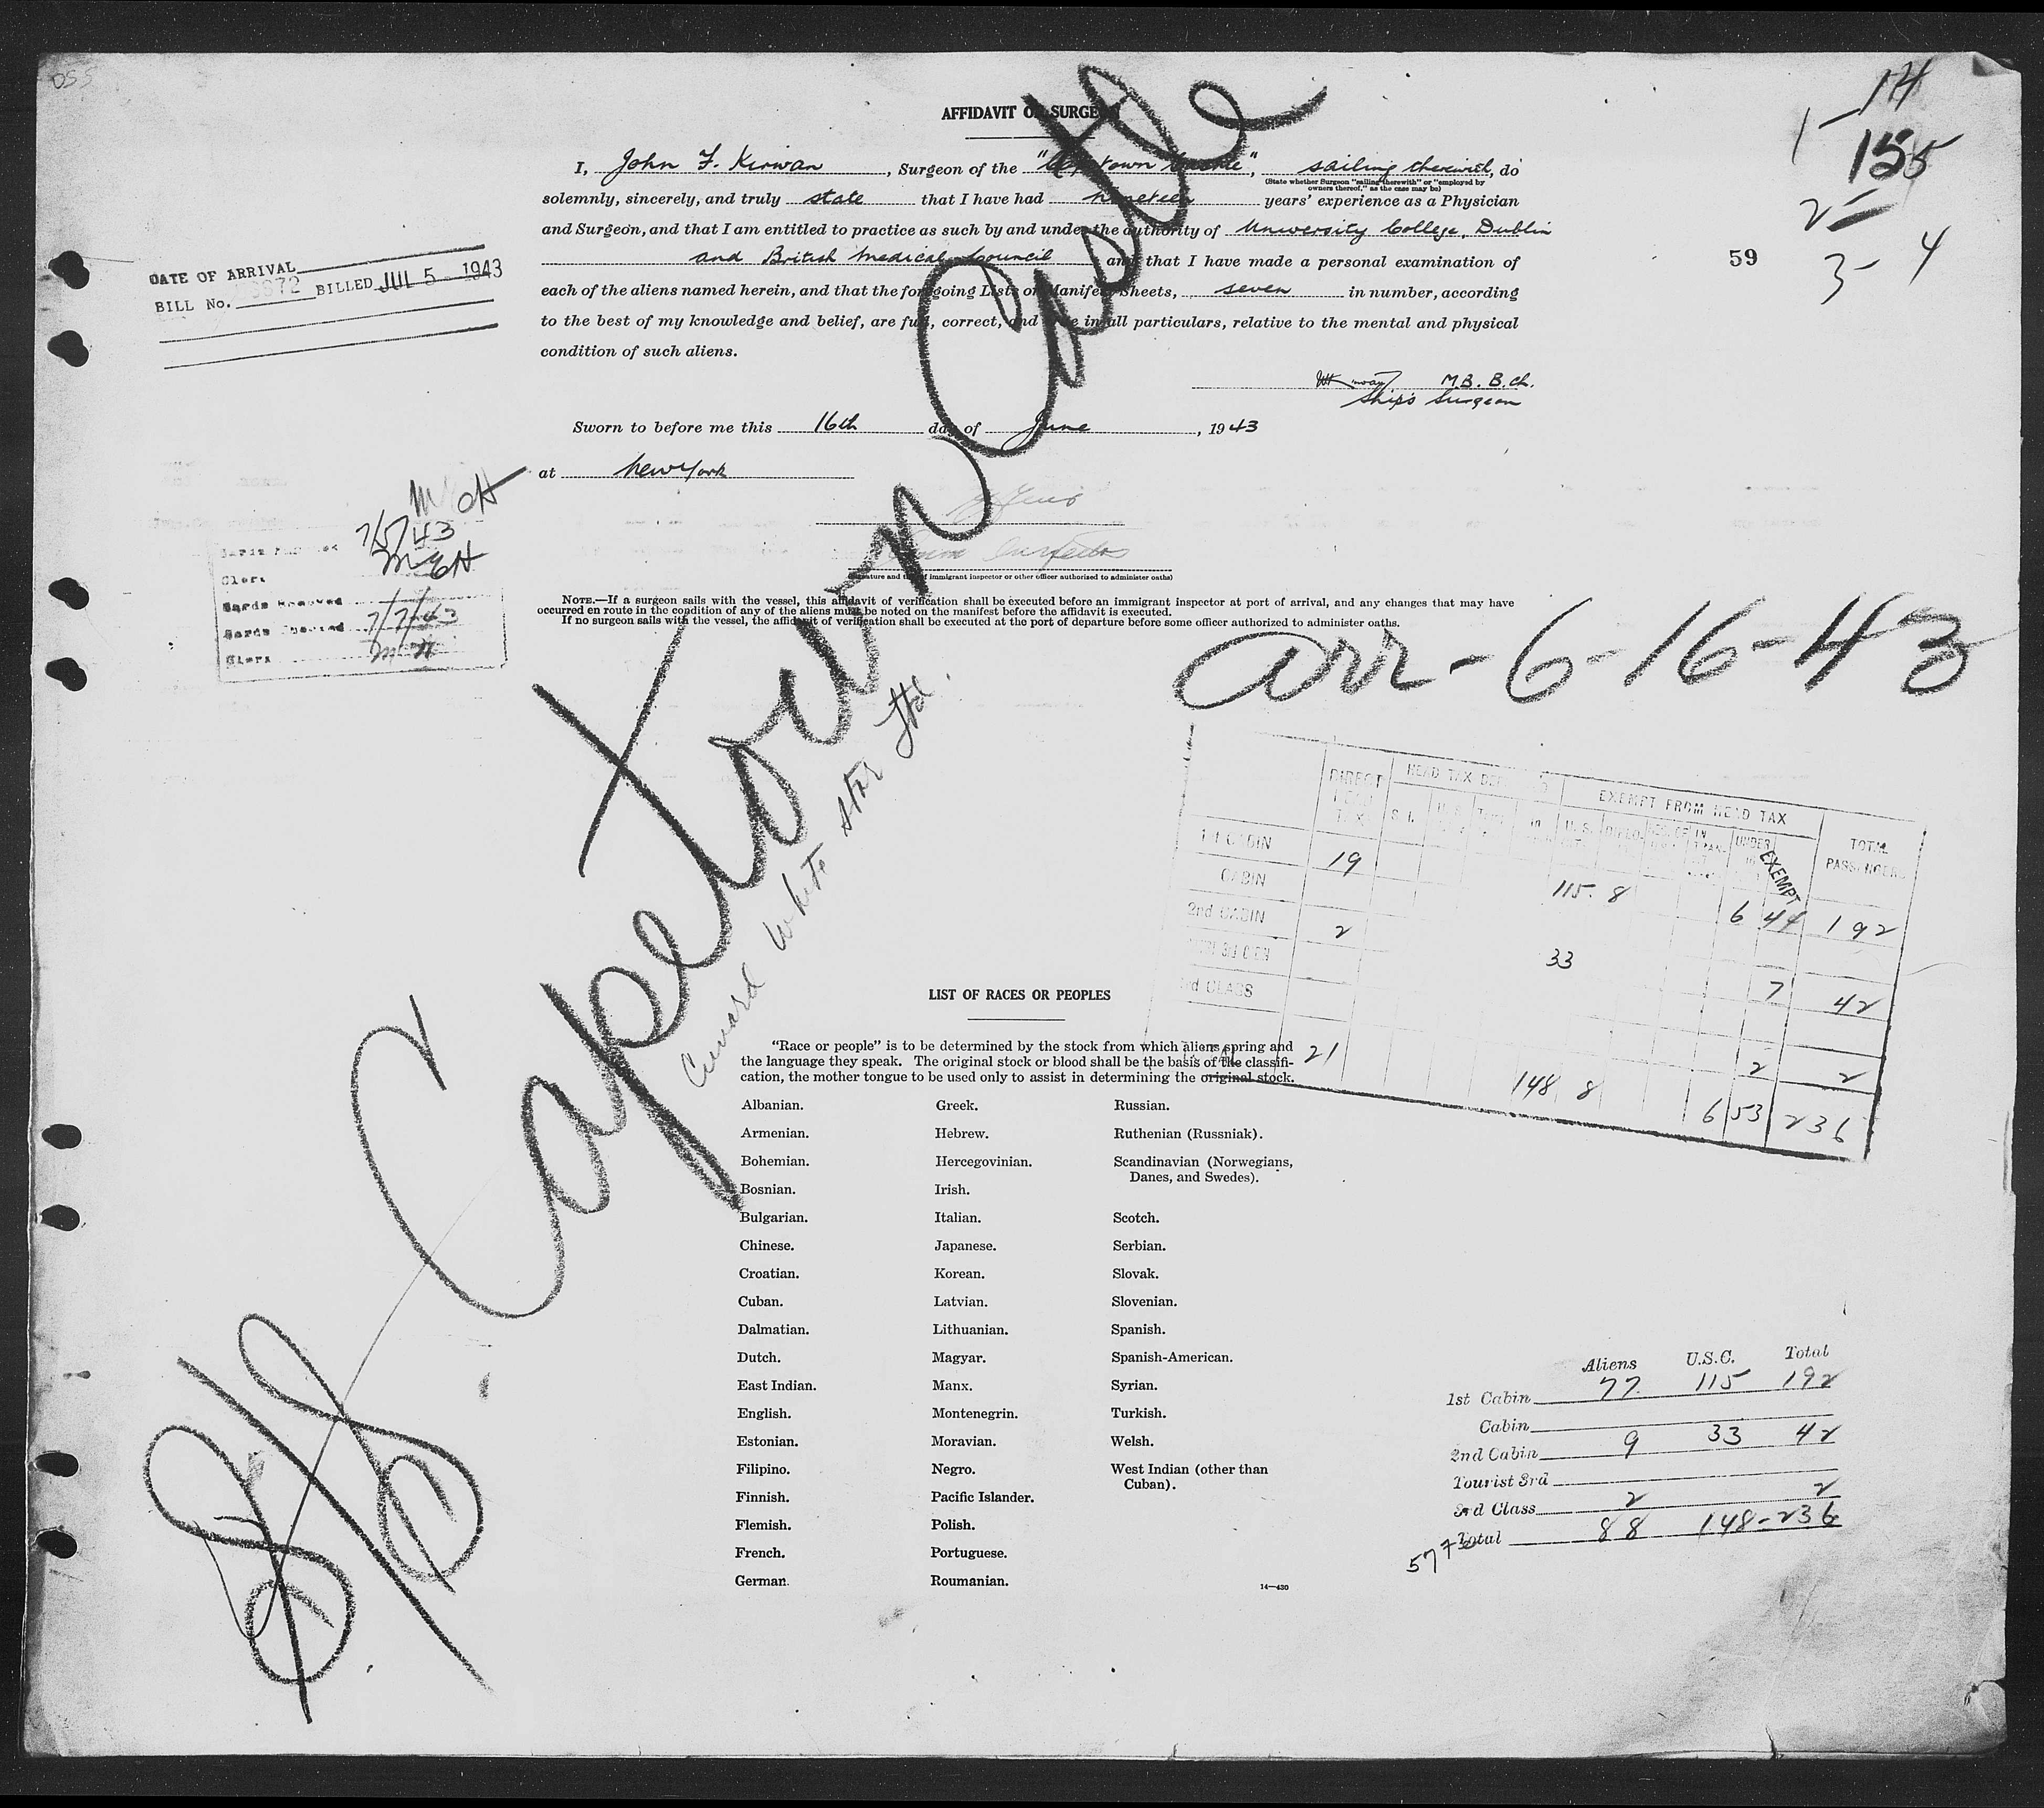 DSS
14
1 - 155
2 -
3 - 4
59
AFFIDAVIT OF SURGEON
I, John F. Kirwan, Surgeon of the "Capetown Castle", sailing therewith, do
(State whether Surgeon "sailing therewith" or "employed by
owners thereof," as the case may be)
solemnly, sincerely, and truly state that I have had nineteen years' experience as a Physician
and Surgeon, and that I am entitled to practice as such by and under the authority of University College, Dublin
and British Medical Council and that I have made a personal examination of
each of the aliens named herein, and that the foregoing Lists or Manifest Sheets, seven in number, according
to the best of my knowledge and belief, are full, correct, and true in all particulars, relative to the mental and physical
condition of such aliens.
M.B. B.Ch.
Ship's Surgeon
Sworn to before me this 16th day of June, 1943
at New York
(Signature and title of immigrant inspector or other officer authorized to administer oaths)
NOTE.—If a surgeon sails with the vessel, this affidavit of verification shall be executed before an immigrant inspector at port of arrival, and any changes that may have
occurred en route in the condition of any of the aliens must be noted on the manifest before the affidavit is executed.
If no surgeon sails with the vessel, the affidavit of verification shall be executed at the port of departure before some officer authorized to administer oaths.
DATE OF ARRIVAL
BILL No. 3872 BILLED JUL 5 - 1943
7/5/43
Clerk
7/7/43
Clerk
S/S. Capetown Castle
Cunard White Star Ltd.
Arr - 6-16-43
DIRECT HEAD TAX
EXEMPT FROM HEAD TAX
TOTAL PASSENGERS
UNDER
EXEMPT
1st CABIN 19 115 8 6 44 192
CABIN
2nd CABIN 2 33 7 42
3rd CLASS 2 2
21 148 8 6 53 236
LIST OF RACES OR PEOPLES
"Race or people" is to be determined by the stock from which aliens spring and
the language they speak. The original stock or blood shall be the basis of the classifi-
cation, the mother tongue to be used only to assist in determining the original stock.
Albanian.
Armenian.
Bohemian.
Bosnian.
Bulgarian.
Chinese.
Croatian.
Cuban.
Dalmatian.
Dutch.
East Indian.
English.
Estonian.
Filipino.
Finnish.
Flemish.
French.
German.
Greek.
Hebrew.
Hercegovinian.
Irish.
Italian.
Japanese.
Korean.
Latvian.
Lithuanian.
Magyar.
Manx.
Montenegrin.
Moravian.
Negro.
Pacific Islander.
Polish.
Portuguese.
Roumanian.
Russian.
Ruthenian (Russniak).
Scandinavian (Norwegians,
Danes, and Swedes).
Scotch.
Serbian.
Slovak.
Slovenian.
Spanish.
Spanish-American.
Syrian.
Turkish.
Welsh.
West Indian (other than
Cuban).
14—430
Aliens U.S.C. Total
1st Cabin 77 115 192
Cabin
2nd Cabin 9 33 42
Tourist 3rd
3rd Class 2 2
Total 88 148 - 236